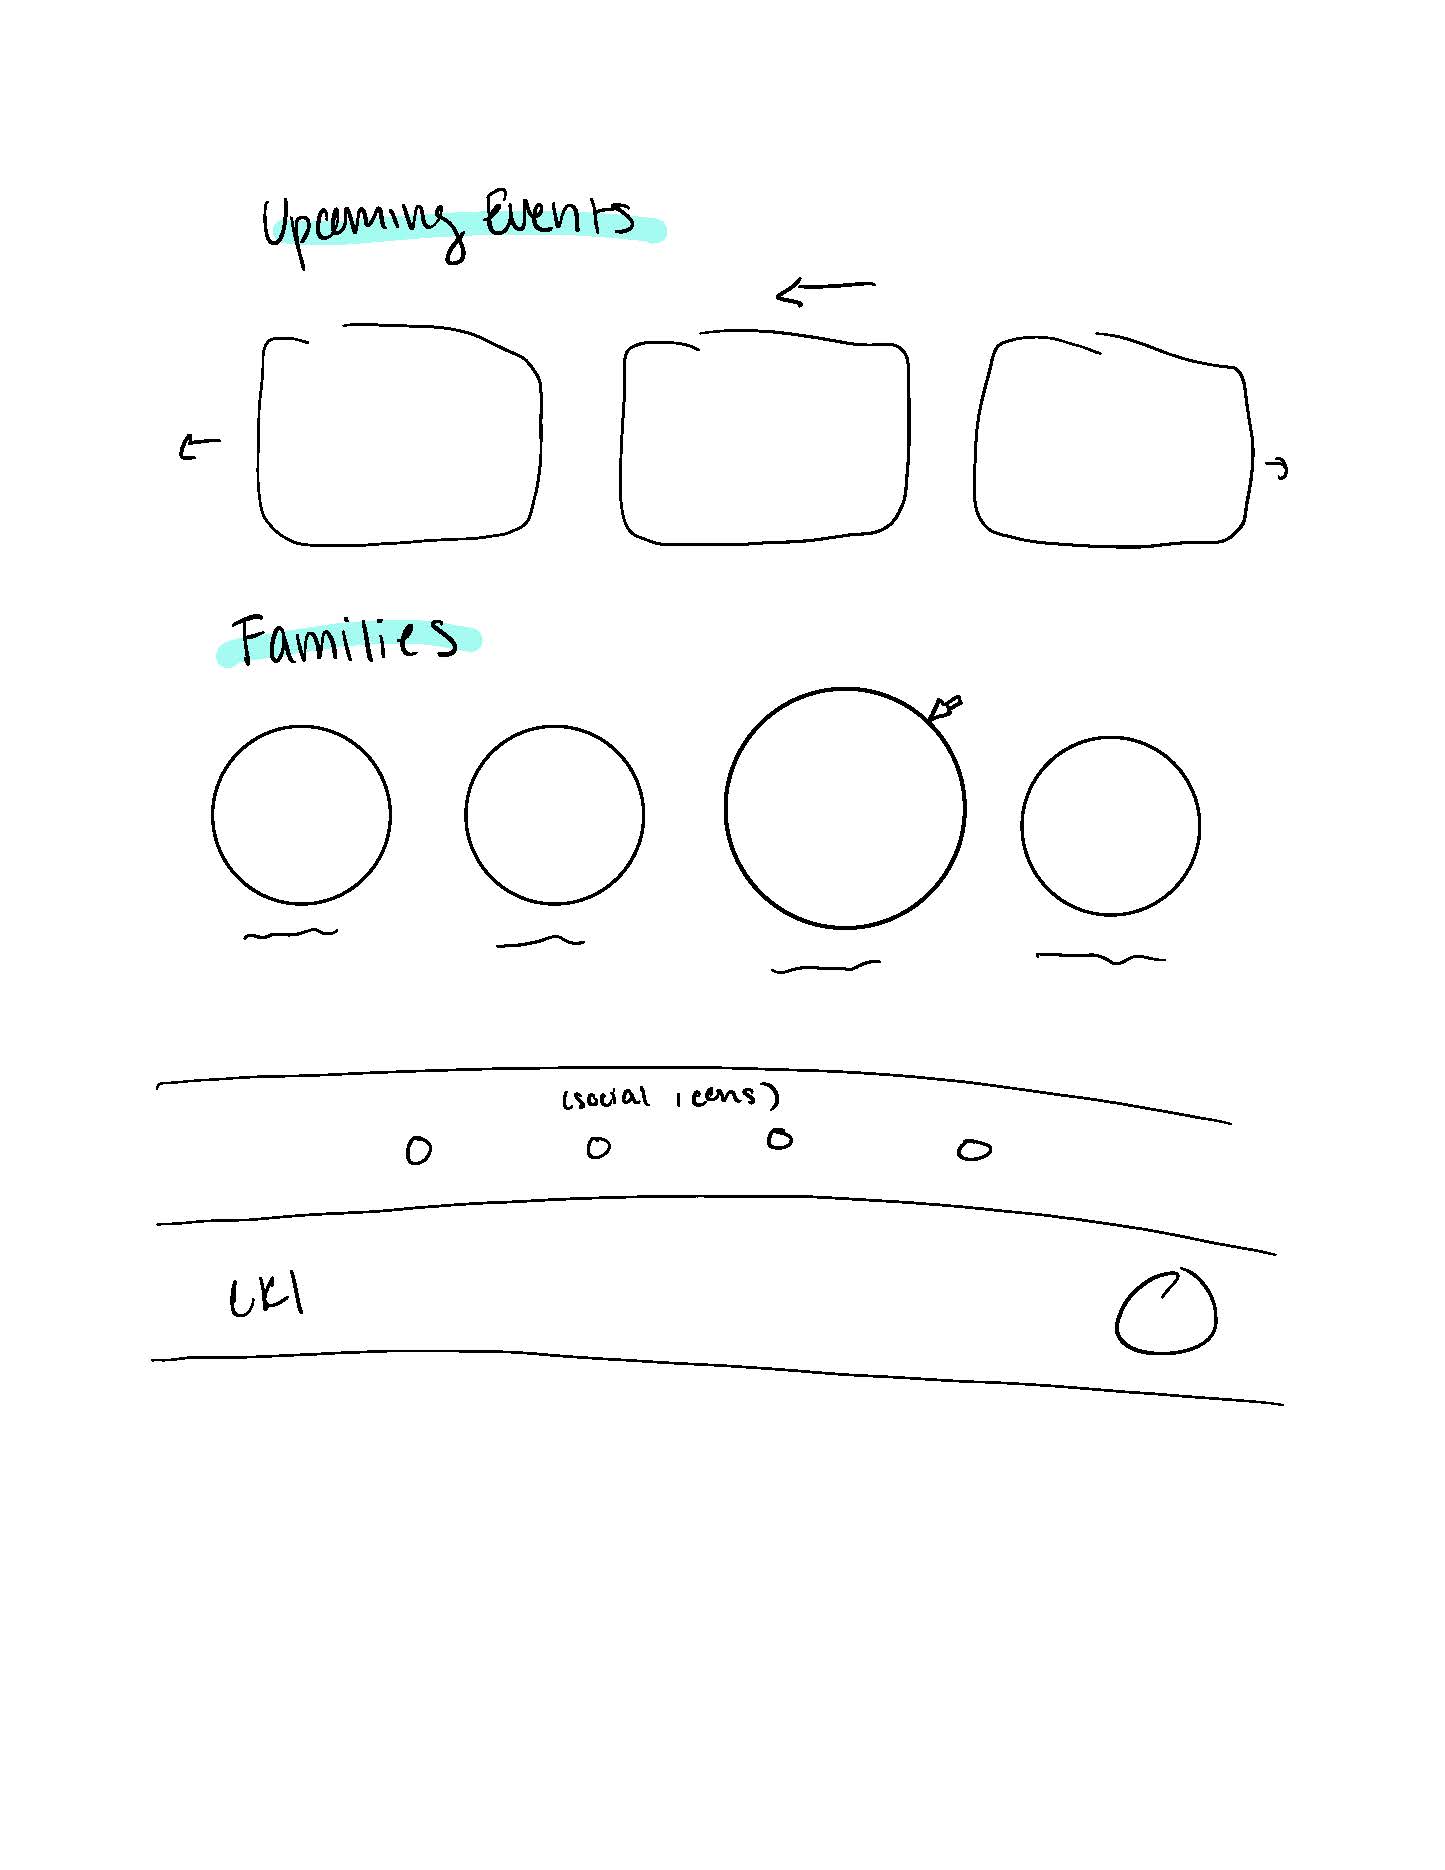 Upcoming Events
Families
(social icons)